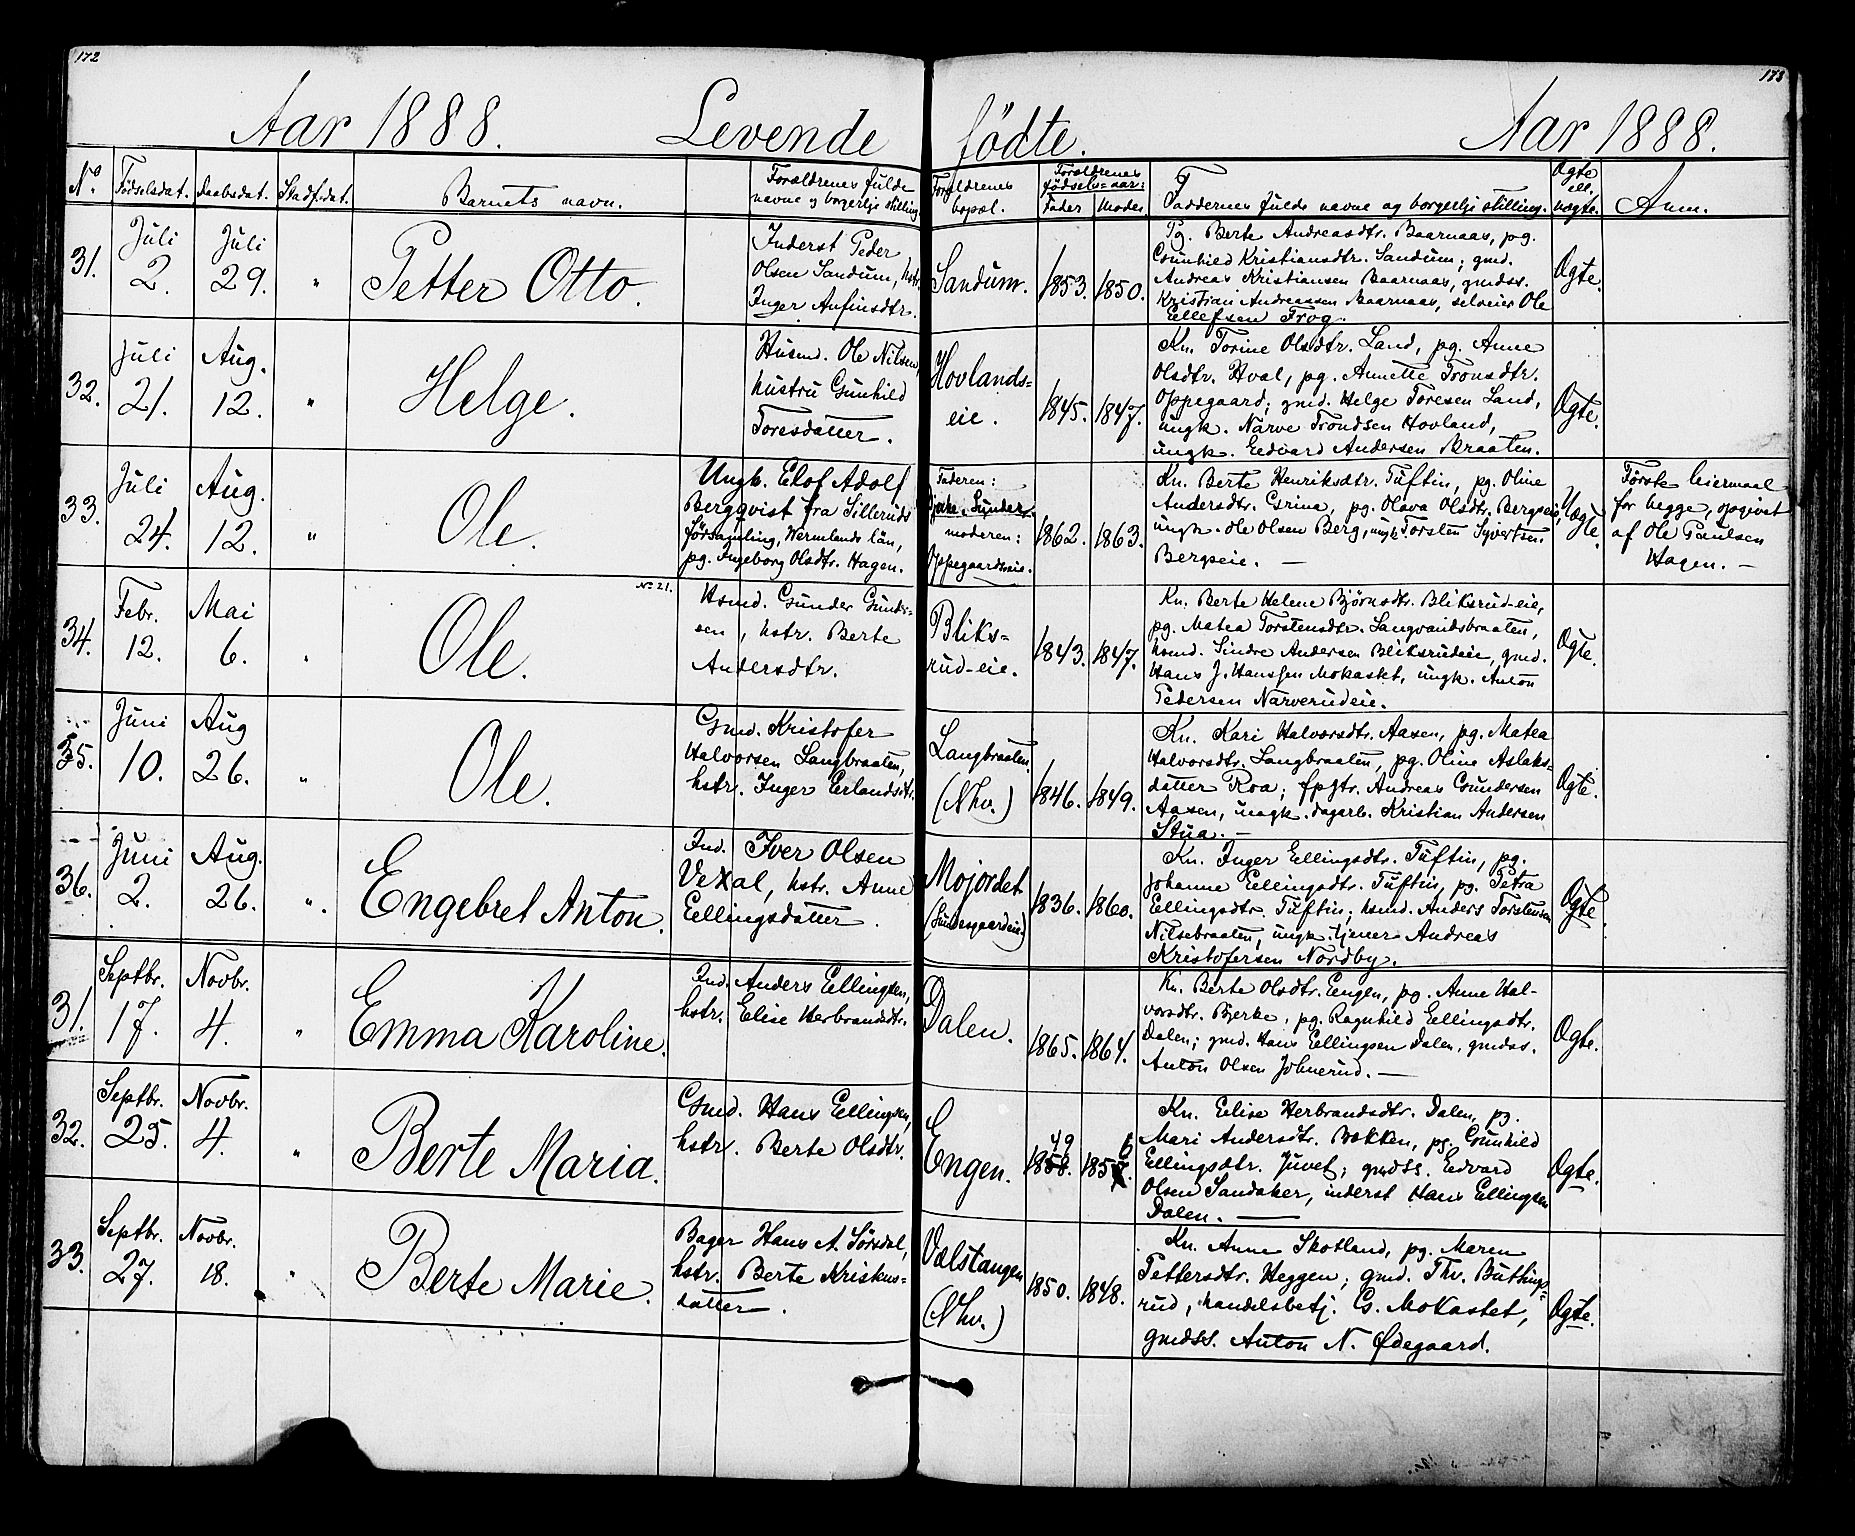 172
173
Aar 1888. Levende fødte. Aar 1888.
No Fødselsdat. Daabsdat. Stadf.dat. Barnets navn. Forældrenes fulde navne og borgerlje stilling. Forældrenes bopæl. Forældrenes fødsels-aar: Fader Moder Faddernes fulde navne og borgerlje stilling. Ægte ell. uægte. Anm.
31. Juli 2. Juli 29. " Petter Otto.
Inderst Peder
Olsen Sandum, hstr.
Inger Anfinsdtr.
Sandum. 1853. 1850.
Pg. Berte Andreasdtr. Baarnaas, pg.
Gunhild Kristiansdtr. Sandum; gmd.
Andreas Kristiansen Baarnaas, gmdss.
Kristian Andreassen Baarnaas, selveier Ole
Ellefsen Frog.
Ægte.
32. Juli 21. Aug. 12. " Helge.
Husmd. Ole Nilsen,
hustru Gunhild
Toresdatter.
Hovlands=
eie.
1845. 1847.
Kn. Torine Olsdtr. Land, pg. Anne
Olsdtr. Hval, pg. Annette Tronsdtr.
Oppegaard; gmd. Helge Toresen Land,
ungk. Narve Trondsen Hovland,
ungk. Eedvard Andersen Braaten.
Ægte.
33. Juli 24. Aug. 12. " Ole.
Ungk. Elof Adolf
Bergqvist fra Silleruds
församling, Wermlands län,
pg. Ingeborg Olsdtr. Hagen.
Faderen:
moderen:
Oppegaardseie.
1862. 1863.
Kn. Berte Henriksdtr. Tuftin, pg. Oline
Andersdtr. Grina, pg. Olava Olsdtr. Bergseie,
ungk. Ole Olsen Berg, ungk. Torsten Syvertsen
Bergseie. —
Uægte.
Første leiermaal
for begge, opgivet
af Ole Paulsen
Hagen. —
34. Febr. 12. Mai 6. " Ole. No 21.
Hsmd. Gunder Gunders-
sen, hstr. Berte
Andersdtr.
Bliks=
rud-eie.
1843. 1847.
Kn. Berte Helene Bjørnsdtr. Bliksrud-eie,
pg. Matea Torstensdtr. Langvandsbraaten,
hsmd. Sindre Andersen Bliksrudeie, gmd.
Hans J. Hanssen Mokastet, ungk. Anton
Pedersen Narverudeie.
Ægte.
35. Juni 10. Aug 26. " Ole.
Gmd. Kristofer
Halvorsen Langbraaten,
hstr. Inger Erlandsdtr.
Langbraaten.
(Nhv.)
1846. 1849.
Kn. Kari Halvorsdtr. Aasen, pg. Matea
Halvorsdtr. Langbraaten, pg. Oline Aslaks-
datter Roa; fpgtr. Andreas Gundersen
Aasen, ungk. dagarb. Kristian Andersen
Stua. —
Ægte.
36. Juni 2. Aug. 26. " Engebret Anton.
Ind. Iver Olsen
Vexal, hstr. Anne
Eellingsdatter.
Mojordet
1836. 1860.
Kn. Inger Eellingsdtr. Tuftin, pg.
Johanne Eellingsdtr. Tuftin, pg. Petra
Eellingsdtr. Tuftin; hsmd. Anders Torstensen
Nilsebraaten, ungk. tjener Andreas
Kristofersen Nordby.
Ægte
31. Septbr. 17. Novbr. 4. " Emma Karoline.
Ind. Anders Eellingsen,
hstr. Elise Herbrandsdtr.
Dalen. 1865. 1864.
Kn. Berte Olsdtr. Eengen, pg. Anne Hal-
vorsdtr. Bjerke, pg. Ragnhild Eellingsdtr.
Dalen; gmd. Hans Eellingsen Dalen, gmdss.
Anton Olsen Johnerud. —
Ægte.
32. Septbr. 25. Novbr. 4. " Berte Maria.
Gmd. Hans Eellingsen,
hstr. Berte Olsdtr.
Engen. 49 1858. 6 1857.
Kn. Eelise Herbrandsdtr. Dalen, pg.
Mari Andersdtr. Bækken, pg. Gunhild
Ellingsdtr. Juvet; gmdss. Eedvard
Olsen Sandaker, inderst Hans Ellingsen
Dalen. —
Ægte.
33. Septbr. 27. Novbr. 18. " Berte Marie.
Bager Hans A. Sørsdal,
hstr. Berte Kristens=
datter.
Vælstangen
(Nhv.)
1850. 1848.
Kn. Anne Skotland, pg. Maren
Pettersdtr. Heggen; gmd. Thv. Buttings=
rud, handelsbetj. G. Mokastet,
gmdss. Anton N. Ødegaard.
Ægte.